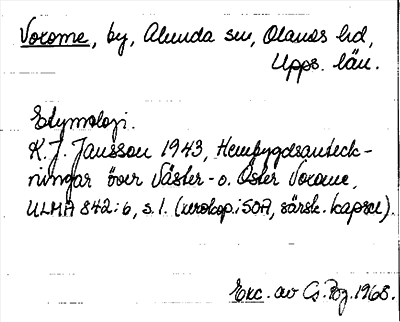 Vorome, by, Alunda sn, Olands hd,
Upps. län.
Etymologi.
K. J. Jansson 1943, Hembygdsanteck-
ningar över Väster- o. Öster Vorome,
ULMA 842:6, s. 1. (xerokop. i SOA, särsk. kapsel).
Exc. av 1968.